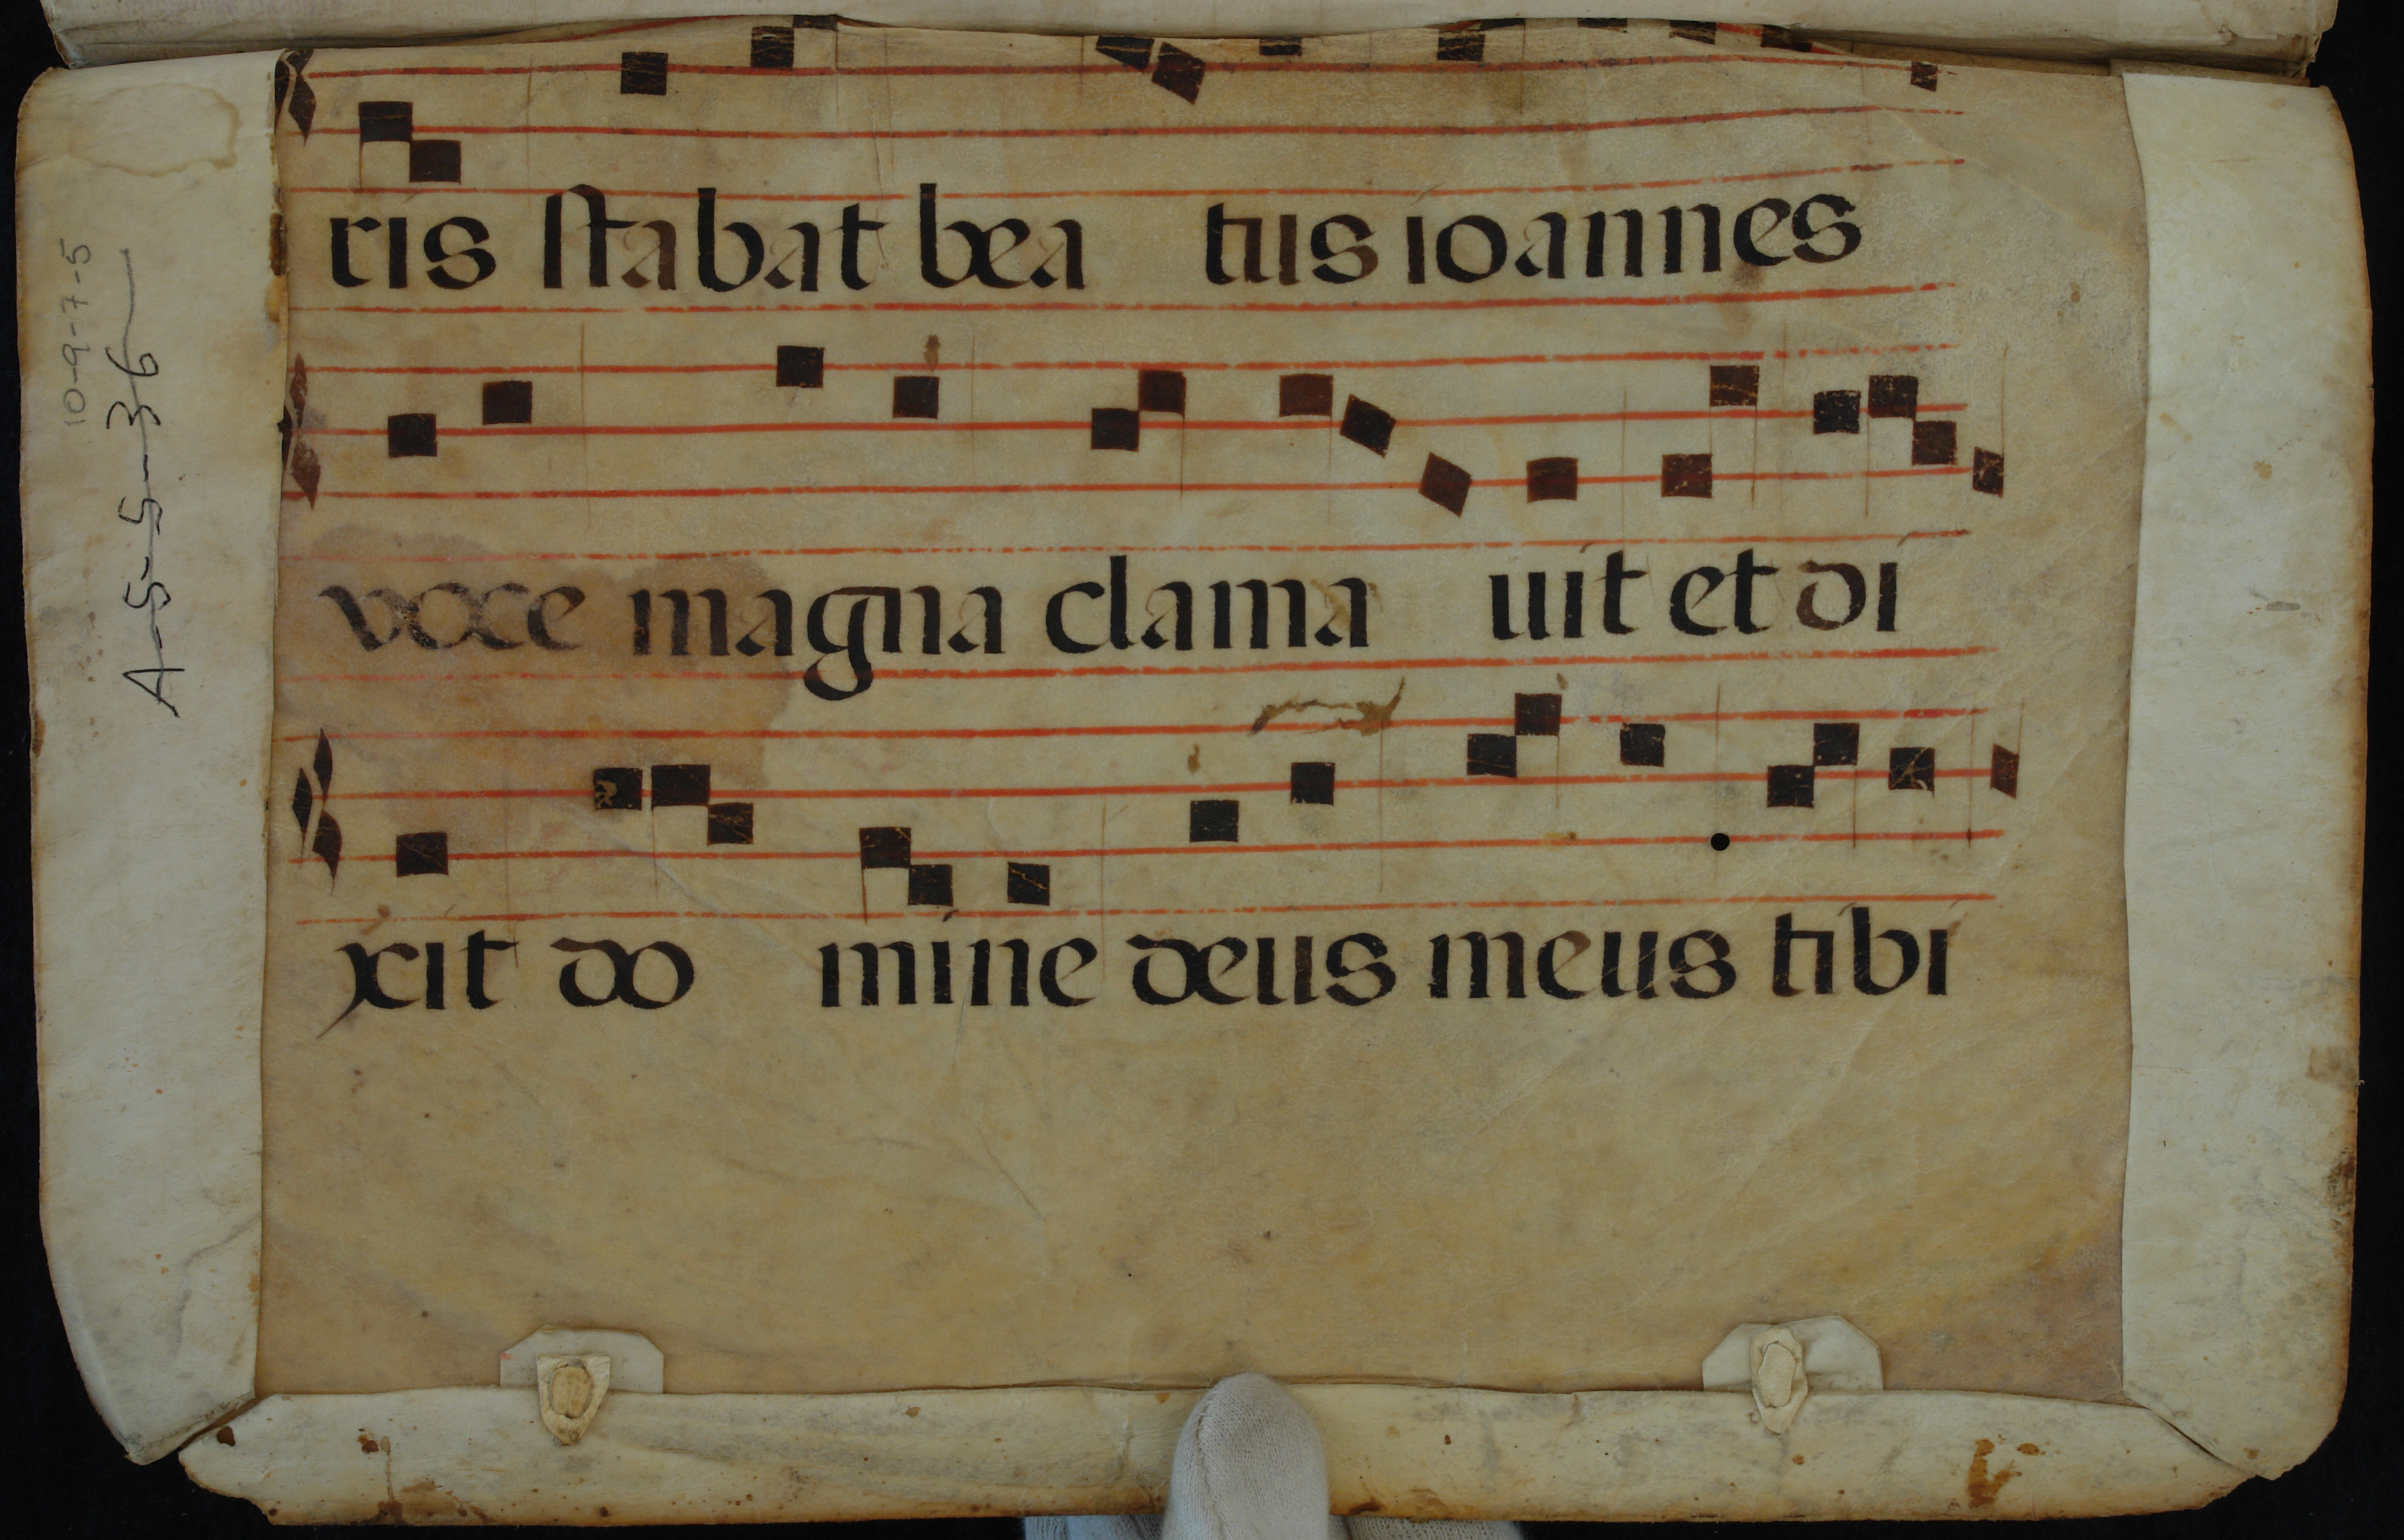 ris stabat bea tus ioannes
voce magna clama uit et di
xit do mine deus meus tibi
10-9-7-5
A-5-5-36